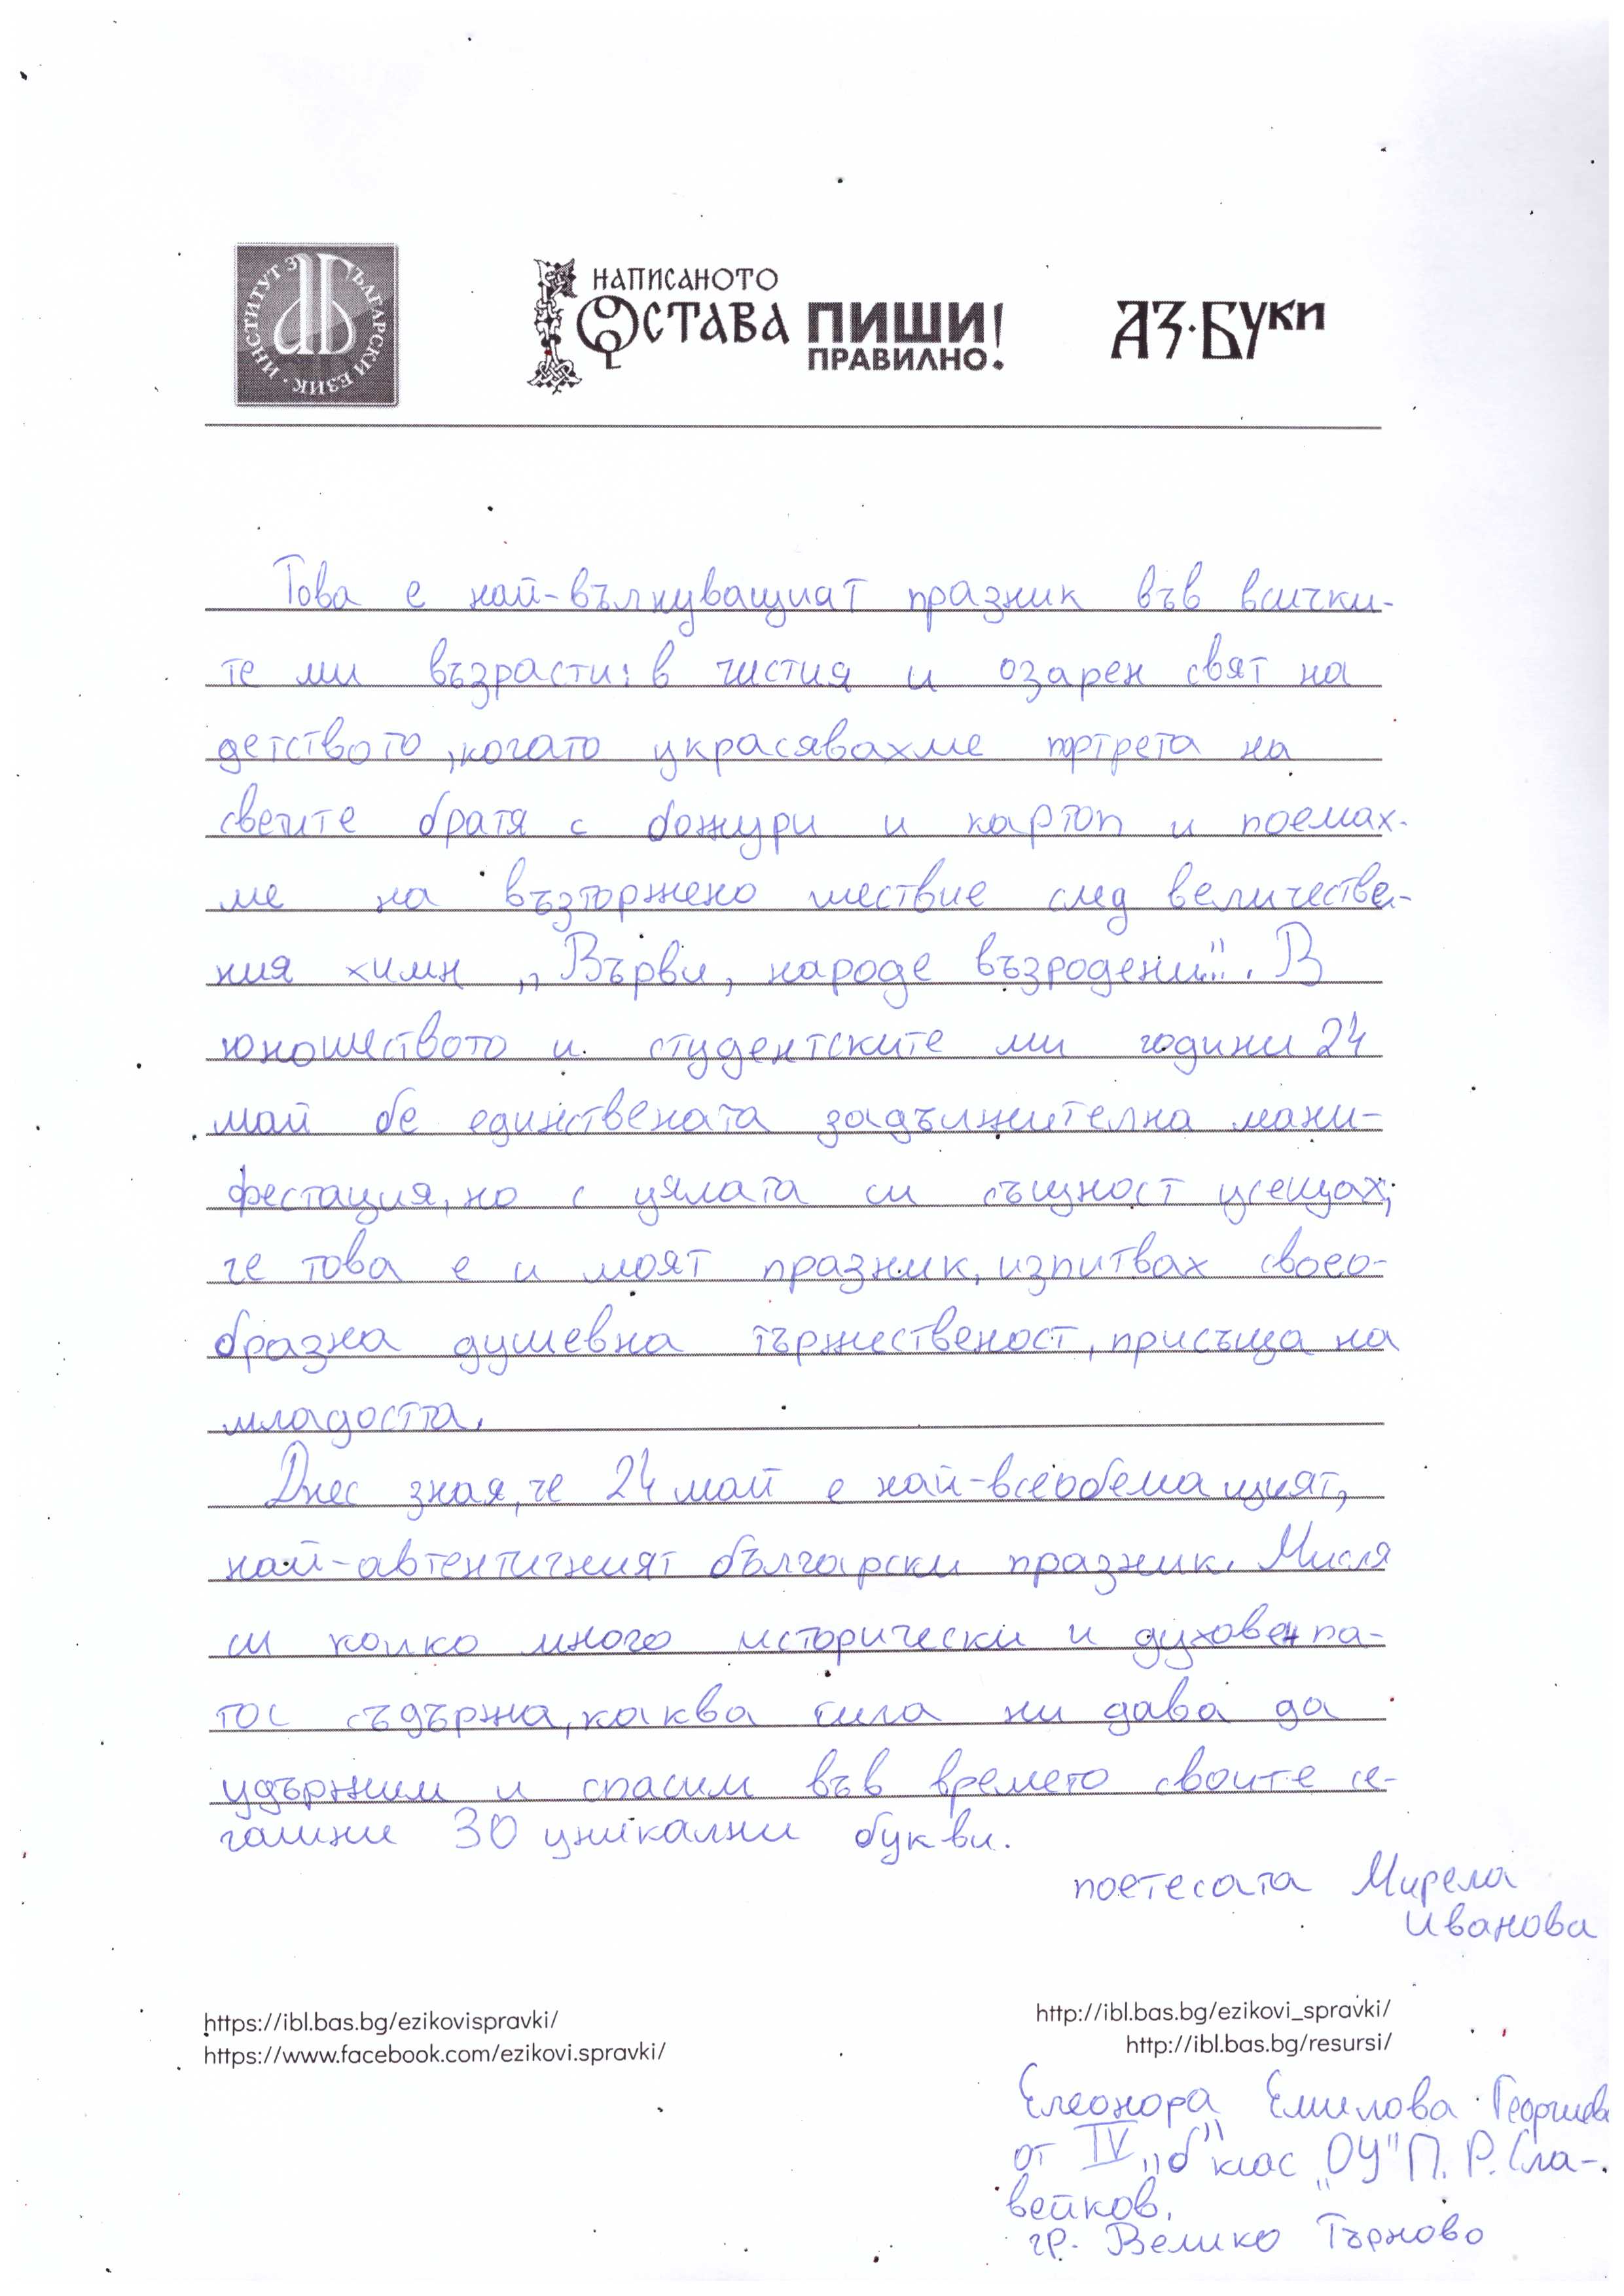 ИНСТИТУТ ЗА БЪЛГАРСКИ ЕЗИК
НАПИСАНОТО
ОСТАВА ПИШИ!
ПРАВИЛНО.
АЗ·БУКИ
Това е най-вълнуващиат празник във всички-
те ми възрасти: в чистия и озарен свят на
детството, когато украсявахме портрета на
светите братя с божури и картоп и поемах-
ме на възторжено шествие след величестве-
ния химн „Върви, народе възродени". В
юношеството и студентските ми години 24
май бе единствената задължителна мани-
фестация, но с цялата си същност усещах,
че това е и моят празник, изпитвах своео-
бразна душевна тържественост, присъща на
младостта.
Днес зная, че 24 май е най-всеобемащият,
най-автентичният български празник. Мисля
си колко много исторически и духовен па-
тос съдържа, каква сила ни дава да
удържим и спасим във времето своите се-
гашни 30 уникални букви.
поетесата Мирела
Иванова
https://ibl.bas.bg/ezikovispravki/
http://ibl.bas.bg/ezikovi_spravki/
https://www.facebook.com/ezikovi.spravki/
http://ibl.bas.bg/resursi/
Елеонора Емилова Георгиева
от IV „б" клас „ОУ" П. Р. Сла-
вейков.
гр. Велико Търново